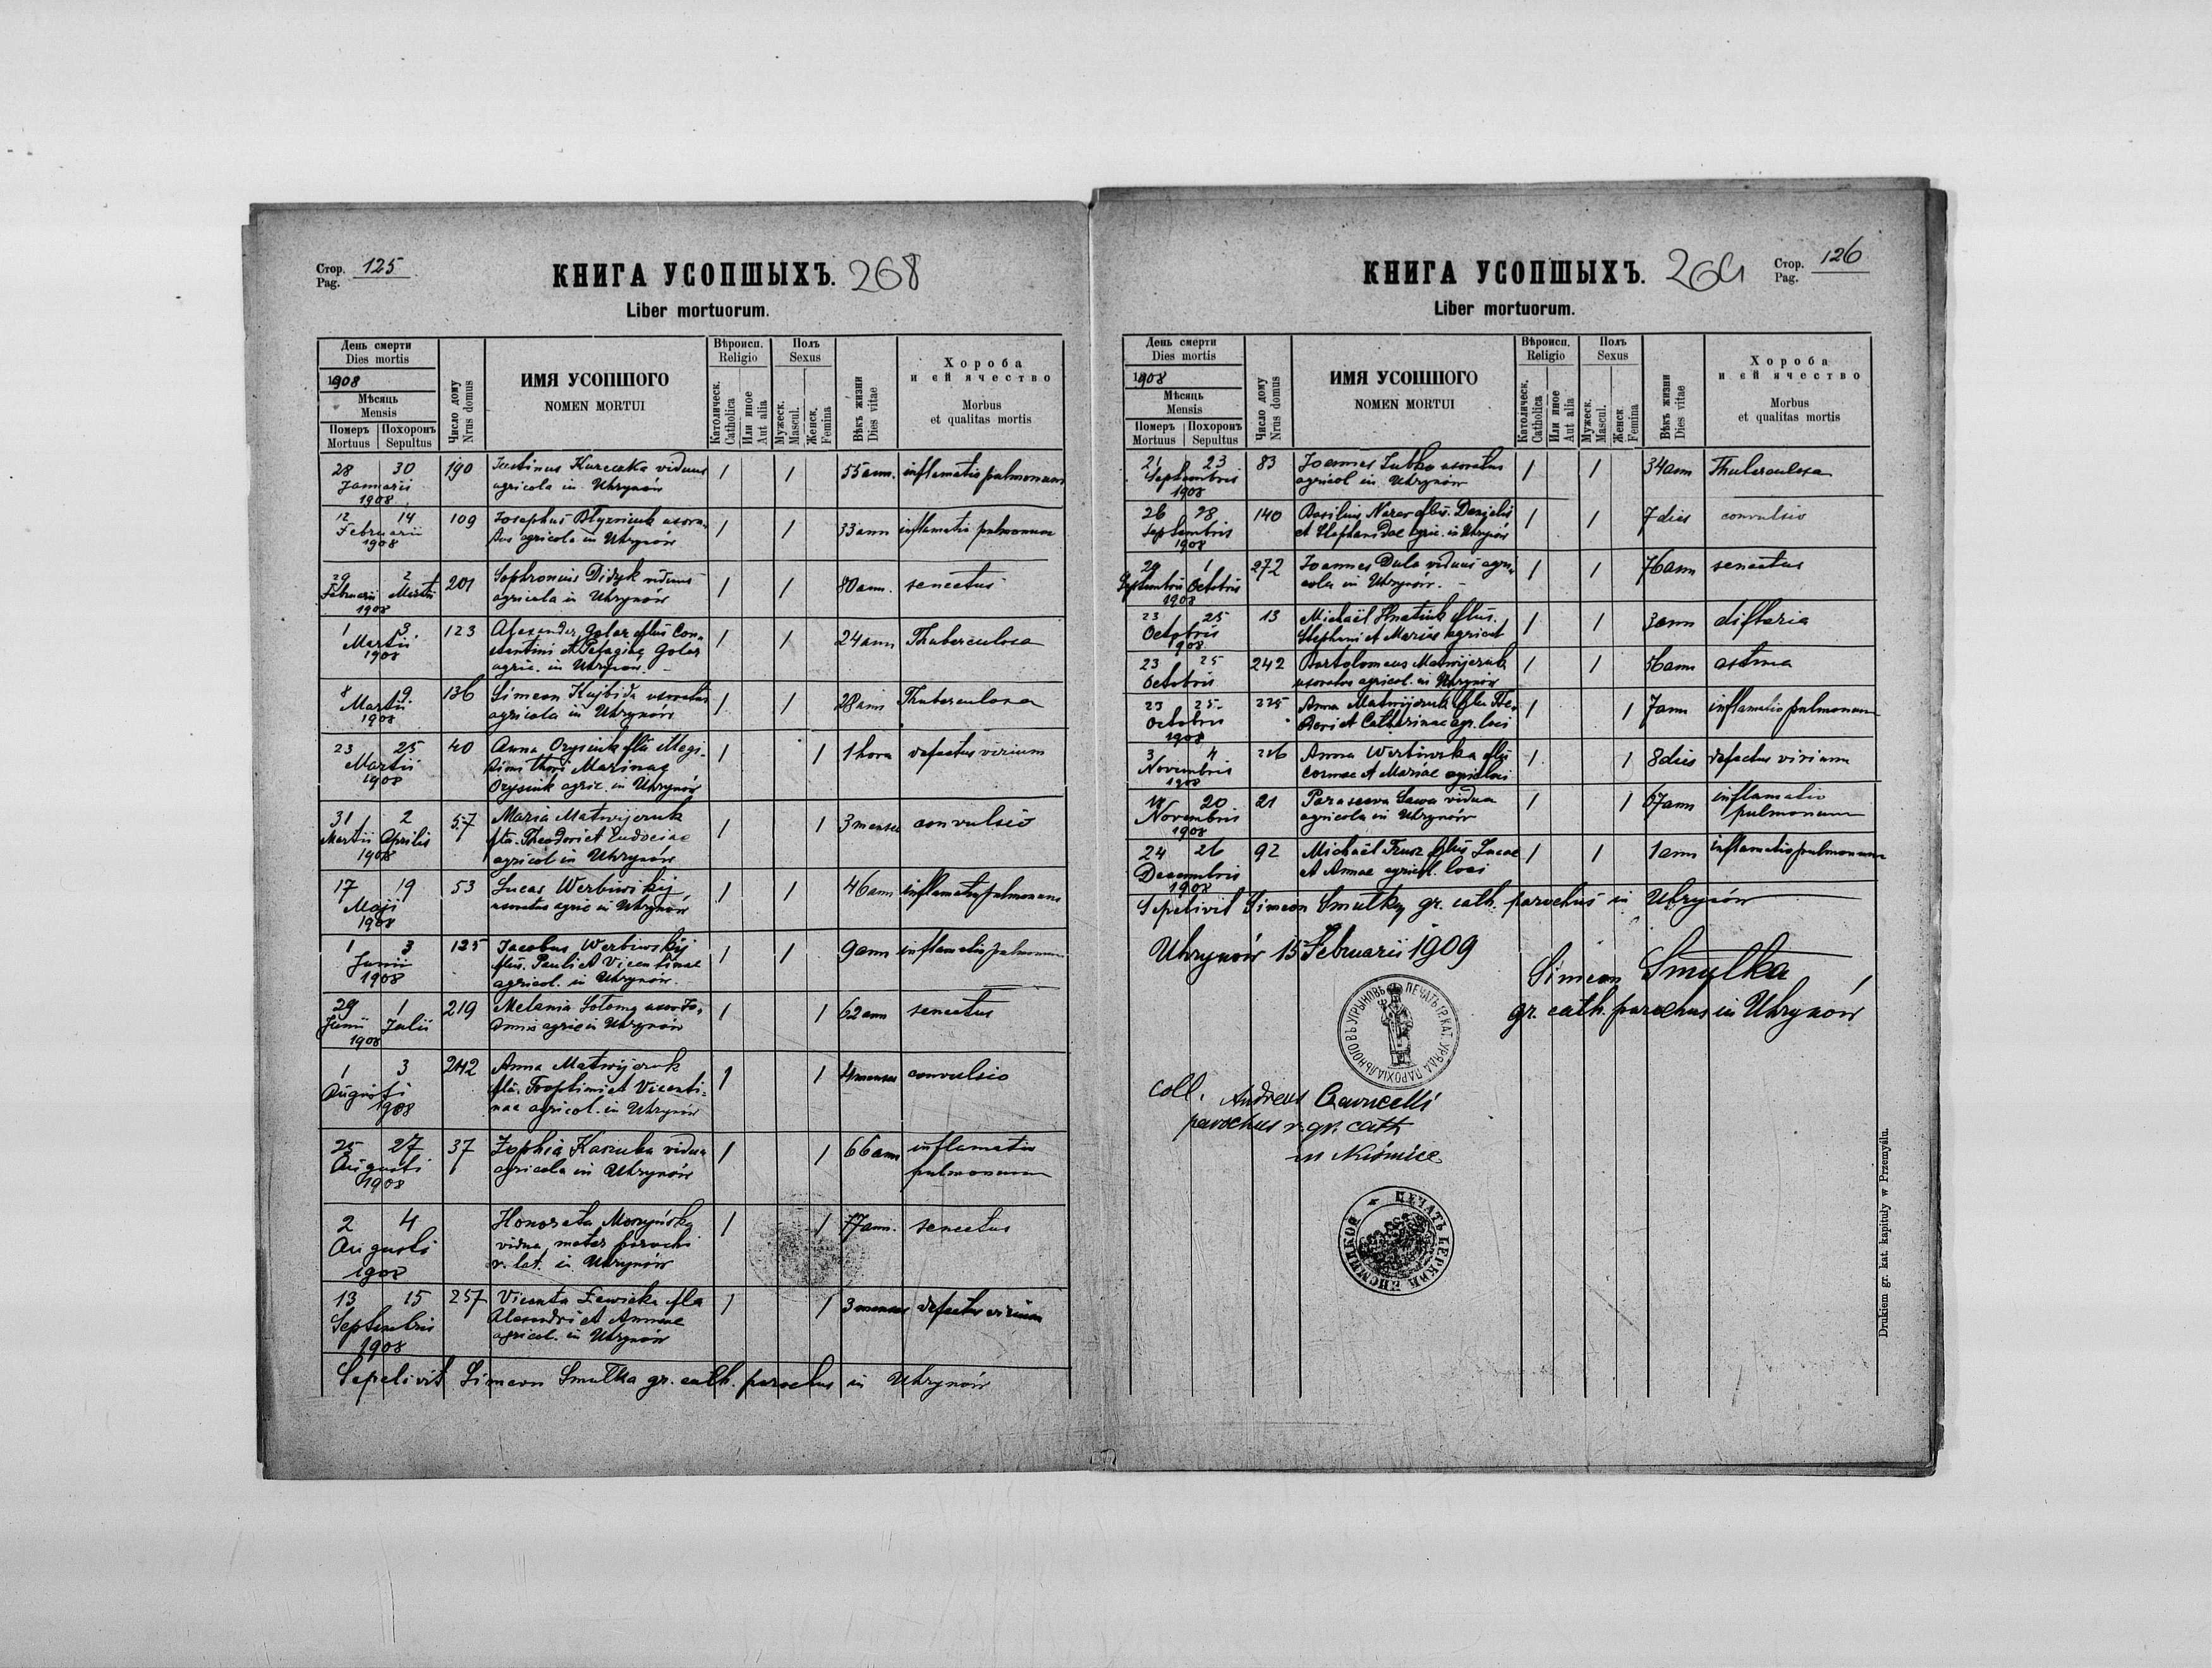 Стор. 125
Pag.
КНИГА УСОПШЫХЪ. 268
Liber mortuorum.
День смерти
Dies mortis
1908
Мѣсяць
Mensis
Померъ Похоронъ
Mortuus Sepultus
Число дому
Nrus domus
ИМЯ УСОПШОГО
NOMEN MORTUI
Вѣроисп.
Religio
Католическ.
Catholica
Или иное
Aut alia
Полъ
Sexus
Мужеск.
Mascul.
Женск.
Femina
Вѣкъ жизни
Dies vitae
Хороба
и єѣ ячество
Morbus
et qualitas mortis
28 30 190 Justinus viduus 1 1 55 ann. inflamatio pulmonum
Januarii agricola in Uhrynów
1908
12 14 109 Josephus Błyzniuk uxora- 1 1 33 ann inflamatio pulmonum
Februarii tus agricola in Uhrynów
1908
29 2 201 Sophronius Didyk viduus 1 1 80 ann. senectus
Februarii Martii agricola in Uhrynów
1908
1 3 123 Alexander Golar flius Con- 1 1 24 ann Thuberculosa
Martii stantini et Pelagiae Golar
1908 agric. in Uhrynów
8 9 136 Simeon Kujbida uxoratus 1 1 28 ann Thuberculosa
Martii agricola in Uhrynów
1908
23 25 40 Anna Orysiuk flia 1 1 1 hora defectus virium
Martii Marinae
1908 Orysiuk agric. in Uhrynów
31 2 57 Maria Matwijczuk 1 1 3 menses convulsio
Martii Aprilis flia. Theodori et Eudociae
1908 agricol in Uhrynów
17 19 53 Lucas Werbiwskij 1 1 46 ann inflamatio pulmonum
Maji uxoratus agric in Uhrynów
1908
1 3 125 Jacobus Werbiwskij 1 1 9 ann inflamatio pulmonum
Junii flius. Pauli et Vicentinae
1908 agricol. in Uhrynów
29 1 219 Melania Sotomy uxor Jo- 1 1 62 ann senectus
Junii Julii annis agric in Uhrynów
1908
1 3 242 Anna Matwijczuk 1 1 4 menses convulsio
Augusti flia. et Vicenti-
1908 nae agricol. in Uhrynów
25 27 37 Zophia Kaziuba vidua 1 1 66 ann inflamatio
Augusti agricola in Uhrynów pulmonum
1908
2 4 Honorata vidua, mater parochi 1 1 77 ann. senectus
Augusti r. lat. in Uhrynów
1908
13 15 257 Vicenta flia 1 1 3 menses defectus virium
Septembris Alexandri et Annae
1908 agricol. in Uhrynów
Sepelivit Simeon Smulka gr. cath. parochus in Uhrynów
КНИГА УСОПШЫХЪ. 264
Стор. 126
Pag.
Liber mortuorum.
День смерти
Dies mortis
1908
Мѣсяць
Mensis
Померъ Похоронъ
Mortuus Sepultus
Число дому
Nrus domus
ИМЯ УСОПШОГО
NOMEN MORTUI
Вѣроисп.
Religio
Католическ.
Catholica
Или иное
Aut alia
Полъ
Sexus
Мужеск.
Mascul.
Женск
Femina
Вѣкъ жизни
Dies vitae
Хороба
и єѣ ячество
Morbus
et qualitas mortis
21 23 83 Joannes uxoratus 1 1 34 ann Thuberculosa
Septembris agricol in Uhrynów
1908
26 28 140 Basilius flius. Danielis 1 1 7 dies convulsio
Septembris et Stephanidae agric. in Uhrynów
1908
29 1 272 Joannes Dula viduus agri- 1 1 76 ann senectus
Septembris Octobris cola in Uhrynów.
1908
23 25 13 Michaël Hnatiuk flius. 1 1 3 ann difteria
Octobris Stephani et Mariae agricol
1908
23 25 242 Bartolomeus Matwijczuk 1 1 56 ann astma
Octobris uxoratus agricol. in Uhrynów
23 25 225 Anna Matwijczuk flia The- 1 1 7 ann inflamatio pulmonum
Octobris dori et Catharinae agr. loci
1908
3 4 226 Anna Werbiwska flia 1 1 8 dies defectus virium
Novembris Cosmae et Mariae agric loci
1908
18 20 21 Parasceva Sawa vidua 1 1 67 ann inflamatio
Novembris agricola in Uhrynów pulmonum
1908
24 26 92 Michaël Trusz flius Lucae 1 1 1 ann inflamatio pulmonum
Decembris et Annae agricol. loci
1908
Sepelivit Simeon Smulka gr. cath. parochus in Uhrynów
Uhrynów 15 Februarii 1909
Simeon Smulka
gr. cath. parochus in Uhrynów
ПЕЧАТЬ ГР. КАТ. УРЯДА ПАРОХІАЛЬНОГО ВЪ УГРЫНОВѢ
coll. Andreas
parochus r. gr. cath
in Niśmice
ПЕЧАТЬ ЦЕРКВИ
Drukiem gr. kat. kapituły w Przemyślu.